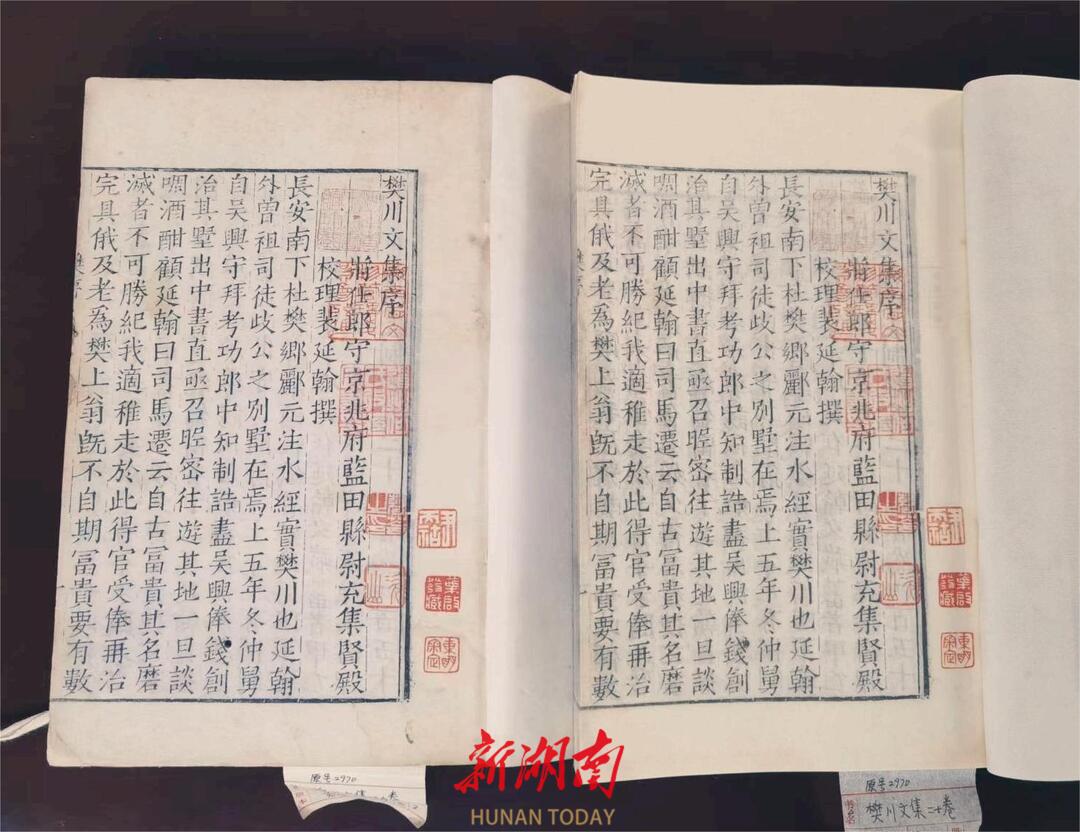 樊川文集序
將仕郎守京兆府藍田縣尉充集賢殿
校理裴延翰撰
長安南下杜樊鄉酈元注水經實樊川也延翰
外曾祖司徒歧公之別墅在焉上五年冬仲舅
自吴興守拜考功郎中知制誥盡吴興俸錢創
治其墅出中書直亟召昵宻往遊其地一旦談
啁酒酣顧延翰曰司馬遷云自古冨貴其名磨
滅者不可勝紀我適稚走於此得官受俸再治
完具俄及老爲樊上翁旣不自期冨貴要有數
樊序
一
樊川文集序
將仕郎守京兆府藍田縣尉充集賢殿
校理裴延翰撰
長安南下杜樊鄉酈元注水經實樊川也延翰
外曾祖司徒歧公之別墅在焉上五年冬仲舅
自吴興守拜考功郎中知制誥盡吴興俸錢創
治其墅出中書直亟召昵宻往遊其地一旦談
啁酒酣顧延翰曰司馬遷云自古冨貴其名磨
滅者不可勝紀我適稚走於此得官受俸再治
完具俄及老爲樊上翁旣不自期冨貴要有數
原号2970
原号2970
樊川文集二十卷
新湖南
HUNAN TODAY